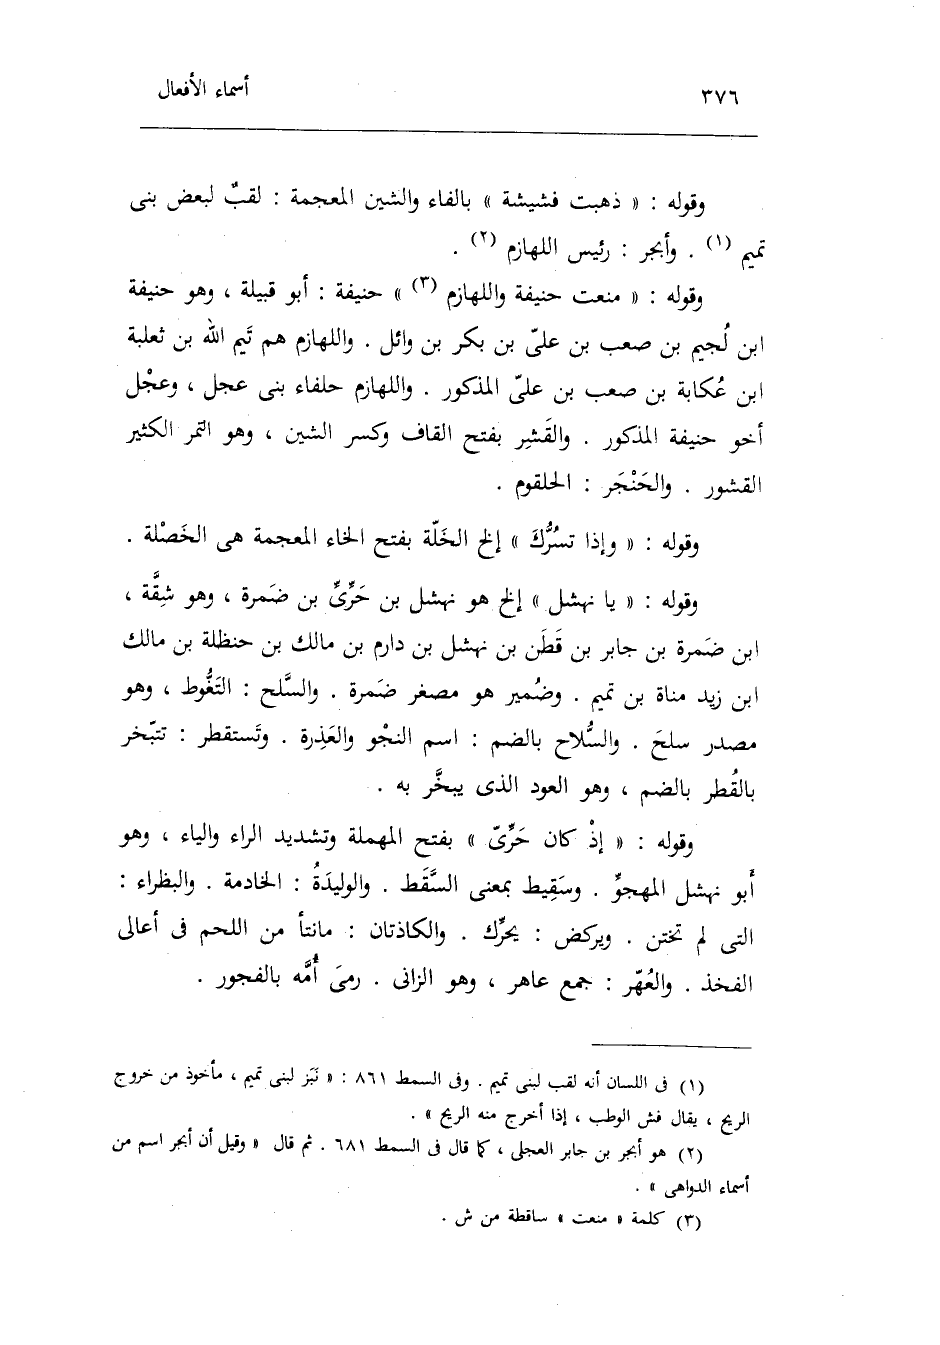 ٣٧٦
أسماء الأفعال
وقوله : « ذهبت فشيشة » بالفاء والشين المعجمة : لقبٌ لبعض بنى
تميم (١) . وأبجر : رئيس اللهازم (٢) .
وقوله : « منعت حنيفة واللهازم (٣) » حنيفة : أبو قبيلة ، وهو حنيفة
ابن لُجيم بن صعب بن علىّ بن بكر بن وائل . واللهازم هم تَيم الله بن ثعلبة
ابن عُكابة بن صعب بن علىّ المذكور . واللهازم حلفاء بنى عجل ، وعجْل
أخو حنيفة المذكور . والقَشِر بفتح القاف وكسر الشين ، وهو التمر الكثير
القشور . والحَنْجَر : الحلقوم .
وقوله : « وإذا تسُرُّكَ » إلخ الخَلّة بفتح الخاء المعجمة هى الخَصْلة .
وقوله : « يا نهشل » إلخ هو نهشل بن حَرِّىِّ بن ضَمرة ، وهو شِقَّة ،
ابن ضَمرة بن جابر بن قَطَن بن نهشل بن دارم بن مالك بن حنظلة بن مالك
ابن زيد مناة بن تميم . وضُمير هو مصغر ضَمرة . والسَّلح : التَغُّوط ، وهو
مصدر سلحَ . والسُّلاح بالضم : اسم النجْو والعَذِرة . وتَستقطر : تتبّخر
بالقُطر بالضم ، وهو العود الذى يبخَّر به .
وقوله : « إذْ كان حَرِّىّ » بفتح المهملة وتشديد الراء والياء ، وهو
أبو نهشل المهجوِّ . وسَقِيط بمعنى السَّقَط . والوليدَةُ : الخادمة . والبظراء :
التى لم تختن . ويركض : يحرِّك . والكاذتان : مانتأ من اللحم فى أعالى
الفخذ . والعُهّر : جمع عاهر ، وهو الزانى . رمىَ أُمَّه بالفجور .
(١) فى اللسان أنه لقب لبنى تميم . وفى السمط ٨٦١ : « نَبَز لبنى تميم ، مأخوذ من خروج
الريح ، يقال فش الوطب ، إذا أخرج منه الريح » .
(٢) هو أبجر بن جابر العجلى ، كما قال فى السمط ٦٨١ . ثم قال « وقيل أن أبجر اسم من
أسماء الدواهى » .
(٣) كلمة « منعت » ساقطة من ش .